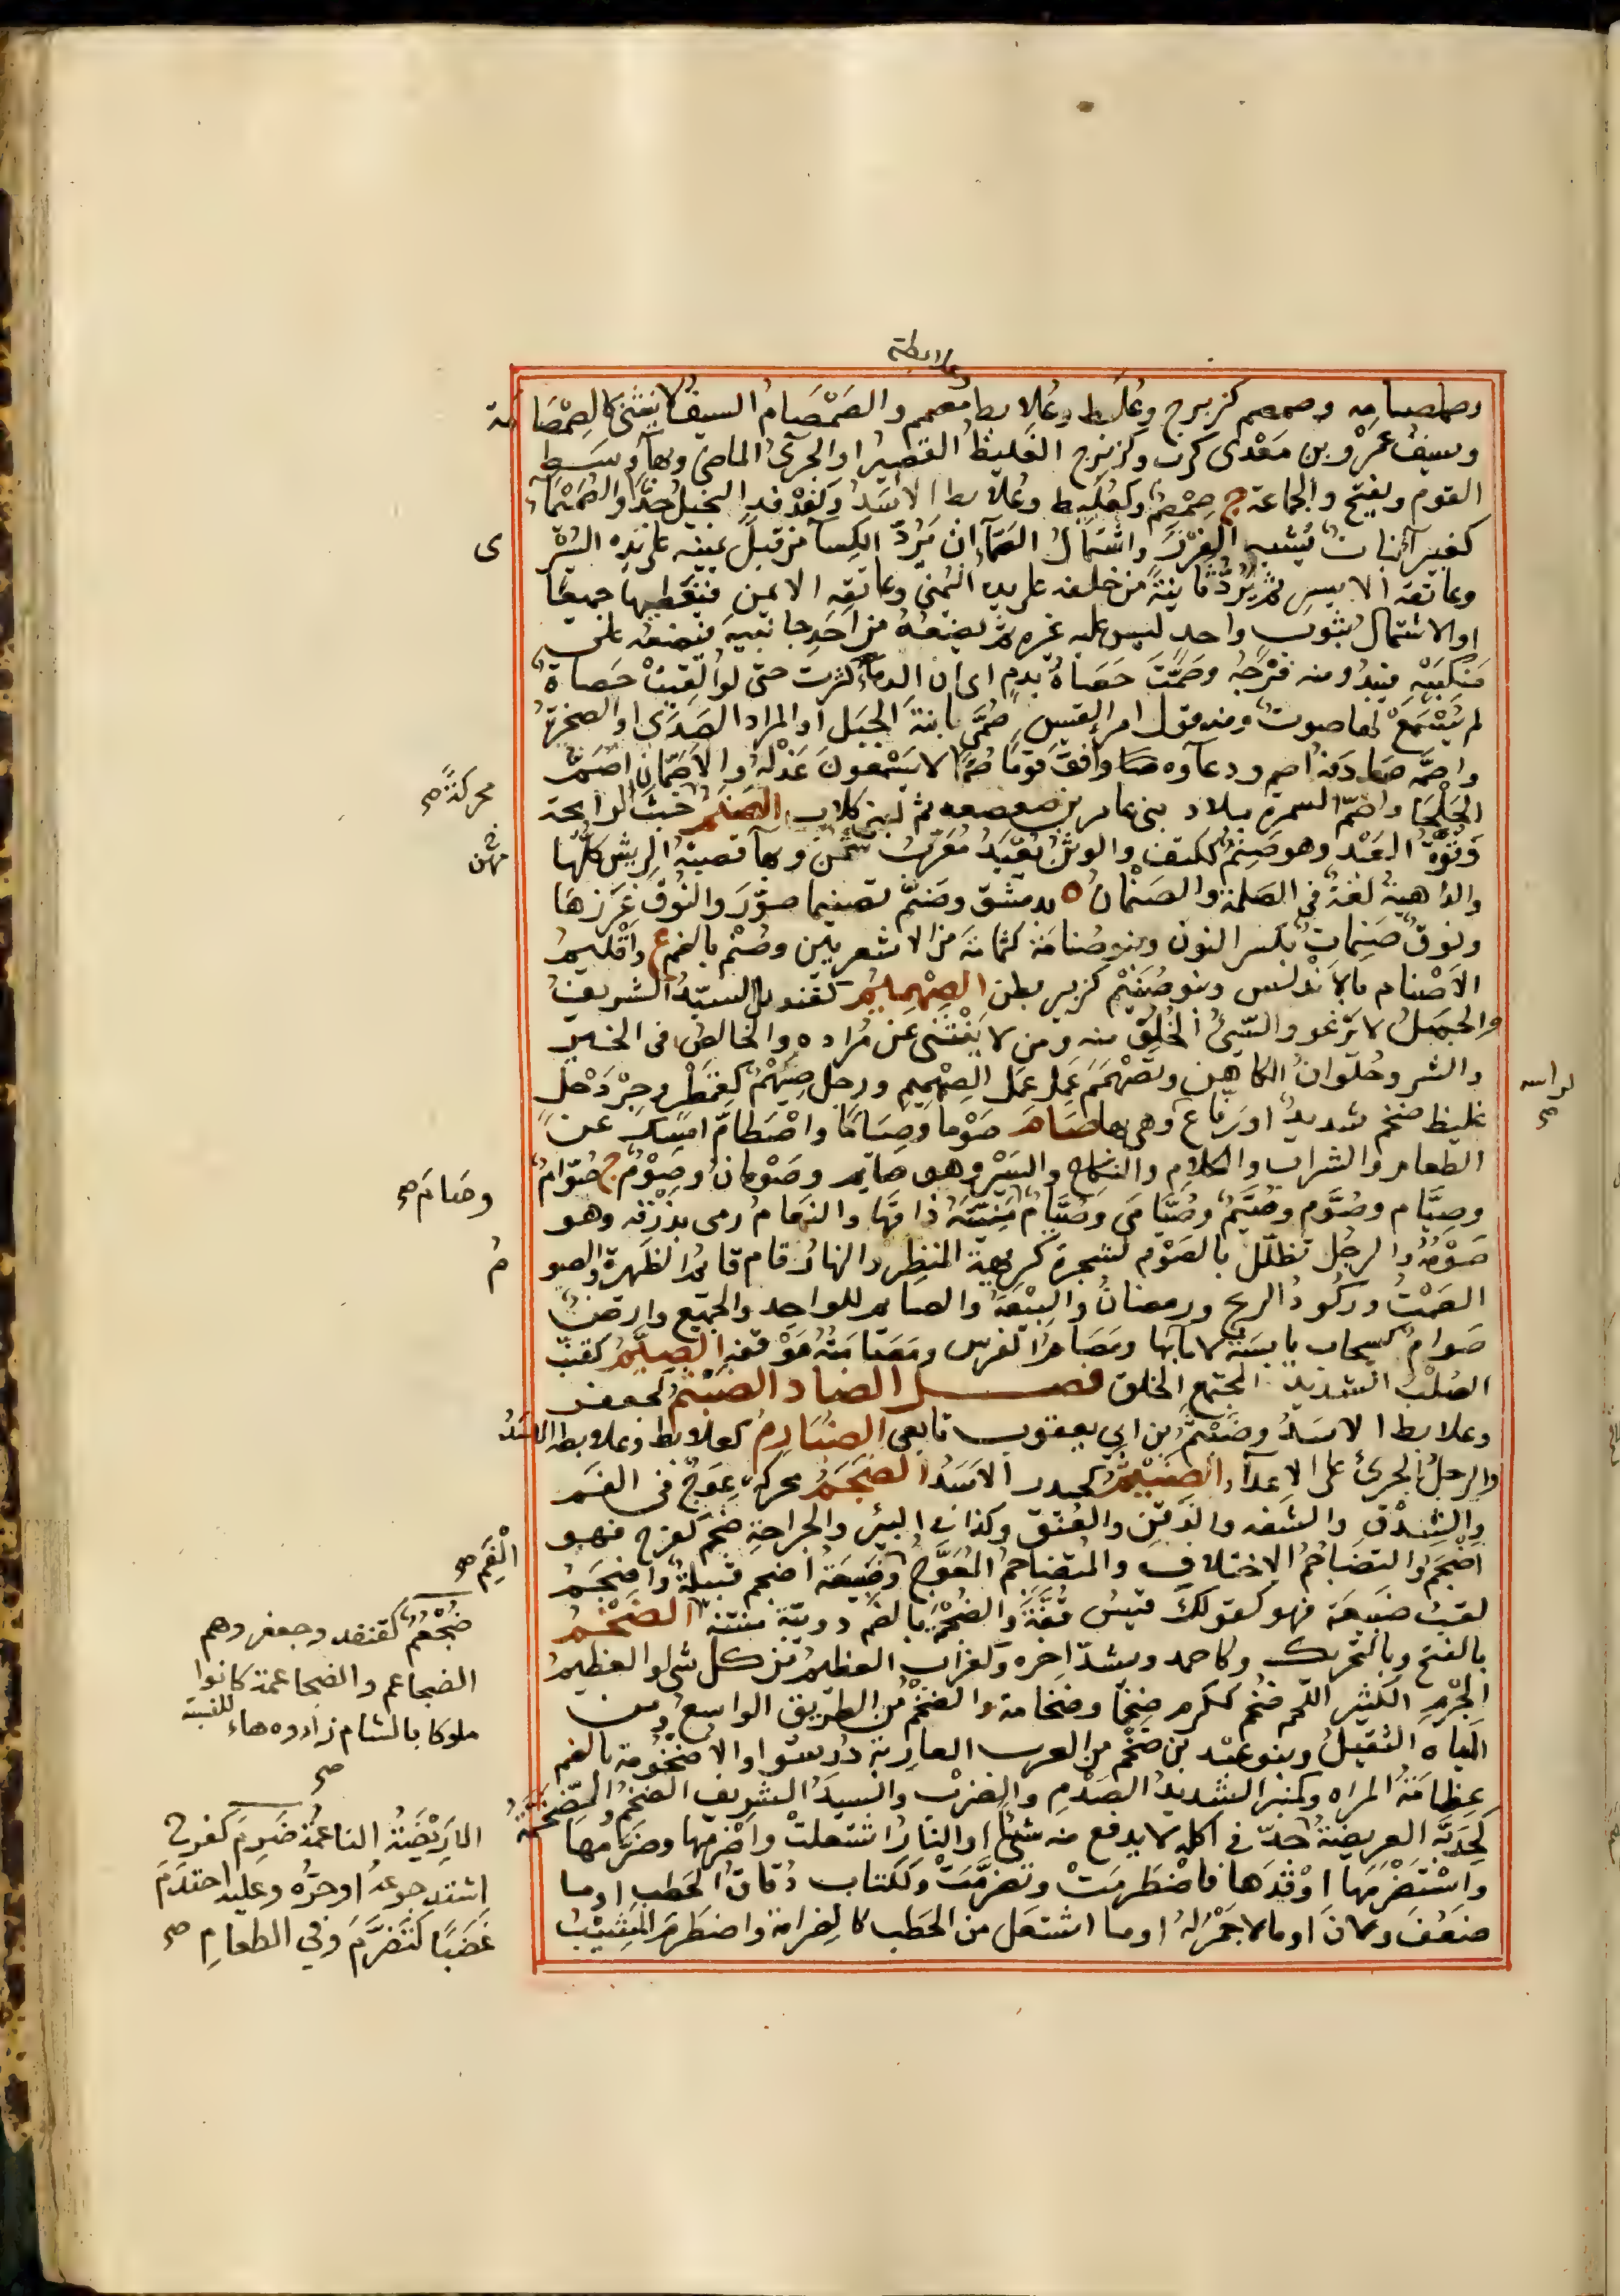 وعلابطة
وصمصامه وصمصم كزبرج وعُلَبِط وعُلابط مصمم والصَمْصَامُ السيفُ لا ينثنى كالصِمْصَامة
وسيفُ عَمرْو بن مَعْدى كرب وكزبرج الغليظُ القصيرُ او الجرئُ الماضى وبهآء وسَطُ
القوم ويفتح والجماعة ج صِمْصِمٌ وكعُلَبِط وعُلابط الاسَدُ وكفدفد البخيلُ جدًّا والصُمَيْمَآءُ
كغبيرآءَ نباتٌ يُشبِه الغرْزَ واشتمالُ الصَمّآءِ ان يَرُدّ الكِسآءَ من قِبَل يمينه على يده اليُسْرى
وعاتقه الايسرِ ثم يَرُدّه ثانيةً من خلفه على يده اليُمنى وعاتقِه الايمن فيغطيهما جميعًا
او الاشتمالُ بثوبٍ واحدٍ ليس عليه غيره ثم يضعُهُ من احَدِ جانبَيه فيضعُه على
مَنكِبَيْه فيبدُو منه فَرْجُه وصَمَّتْ حَصَاةٌ بدمٍ اى ان الدمآء كثرت حتى لو اُلقِيَتْ حَصاةٌ
لم يُسْمَعْ لها صوتٌ ومنه قول امرئ القيس صَمّى ابنةَ الجبَلِ او المراد الصَدَى او الصخرةُ
واصمّه صادفه اصم ودعآوه صادَفَ قومًا صُمًّا لا يسْمعونَ عَذْلَهُ والاصَمّانِ اصَمُّ
الجَلْحَآء واصَمُّ السمرة ببلاد بنى عامر بن صعصعه ثم لبنى كلاب الصَنَمُ خبثُ الرايحة
محركةً صح
وقُوّةُ العَبْدِ وهو صَنِمٌ ككتفٍ والوثنُ يُعْبَدُ مُعَرّبُ شمن وبهآء قصبةُ الريش كلُّها
والداهيةُ لغةٌ فى الصلمة والصَنْمانُ ة بدمشق وصَنَّمَ تصنيما صوّرَ والنُوقُ غزرها
ونوقٌ صَنِماتٌ بكسر النون وبنو صُنامَة كثمامة من الاشعريين وصُنْم بالضم ع واقليمُ
الاَصْنام بالاَنْدلس وبنو صُنَيْم كزبير بطن الصِهْمِيمُ كقنديل السيّدُ الشريفُ
والجملُ لا يَرْغو والسّيئُ الخُلُقِ منه ومن لا ينْثَنى عن مُراده والخالصُ فى الخير
والشر وحُلوَانُ الكاهن وتَصَهْمَم عَمِل عَمَل الصِهْمِيم ورجل صِيَهْمٌ كقِمَطْر وجِرْدَحْل
غليظ ضخم شديدٌ او رفّاع راسه وهى بهآء صَامَ صَوْما وصِيَامًا واصْطَامَ امسك عن
الطعام والشراب والكلام والنكاح والسَيْر وهو صايم وصَوْمانُ وصَوْمٌ ج صُوّامٌ
وصيَّام وصُوَّم وصُيَّمٌ وصُيّامى وصَيَامى صح وصُيّامٌ مَنِيَّتَهُ ذاقَها والنعام رمى بذرْقه وهو
صَوْمُهُ والرجُل تظلّل بالصَوْم لشجرة كريهةِ المنظر والنهارُ قام قايمُ الظهيرة والصومُ
الصَمْتُ وركُودُ الريح ورمضانُ والبِيْعَةُ والصايم للواحِد والجميع وارضٌ
صَوامٌ كسحاب يابسَةٌ لا مآء بها ومَصَامُ الفرس ومَصَامَتُهُ مَوْقفه الصِيَّمُ كقنّب
الصُلْبُ الشديدُ المجتمع الخلق فصل الضاد الضَبْثمُ كجعفر
وعلابط الاسَدُ وضَبْثَمُ بن ابى يعقوب تابعى الضُبَارِمُ كعلابط وعلابطة الاسَدُ
والرجلُ الجرئُ على الاعدآء الضَيْثمُ كحيدر الاَسَدُ الضَجَمُ محركةً عِوَجٌ فى الفَم
والشِدْقِ والشفه والذَقَنِ والعُنق وكذا فى البئر والجراحة ضجم كفرح فهو
اضْجَمُ والتضاجُمُ الاختلاف والمُتضاجمُ المُعَوَّجُ الفَمِ صح وضُبَيعَةُ اضجم قبيلةٌ واضجَمُ
لقبُ ضبيعة فهو كقولك قيسُ قُفَّةَ والضُجْمَةُ بالضم دويبّة منتنة الضَخْمُ
ضُجْعُمٌ كقنفد وجعفر وهم
الضجاعم والضجاعمة كانوا
ملوكا بالشام زادوه هاء للنسبة
صح
بالفتح وبالتحريك وكاحمد ويشدّ اخره وكغراب العظيم من كل شى او العظيمُ
الجِرْمِ الكثير اللحم ضخُم ككرم ضِخَمًا وضخامة والضخْمُ من الطريق الواسعُ ومن
المياه الثقيلُ وبنو عبد بن ضخم من العرب العاربة دُرِسُوا والاضخُومة بالضم
عِظامَةُ المراه وكمنبر الشديدُ الصَدْم والضرب والسيّدُ الشريف الضخمُ والمِضخَمّةُ
كخِدَبّة العريضةُ الاريضَةُ الناعمةُ ضَرِمَ كفرح
اشتد جوعُه او حرُّه وعليه احتدَمَ
غَضَبًا كتضَرَّمَ وفى الطعام صح
جدّ فى اكله لا يدفع منه شيئًا والنارُ اشتعلتْ واضْرمَها وضرّمَها
واسْتَضْرمَها اوْقدَها فاضْطَرمَتْ وتضرّمَتْ وككتاب دُقاقُ الحَطب او ما
ضعُفَ ولانَ او ما لا جَمْرَ لهُ او ما اشتعَل من الحَطب كالضِرامة واضطَرمَ المَشيبُ